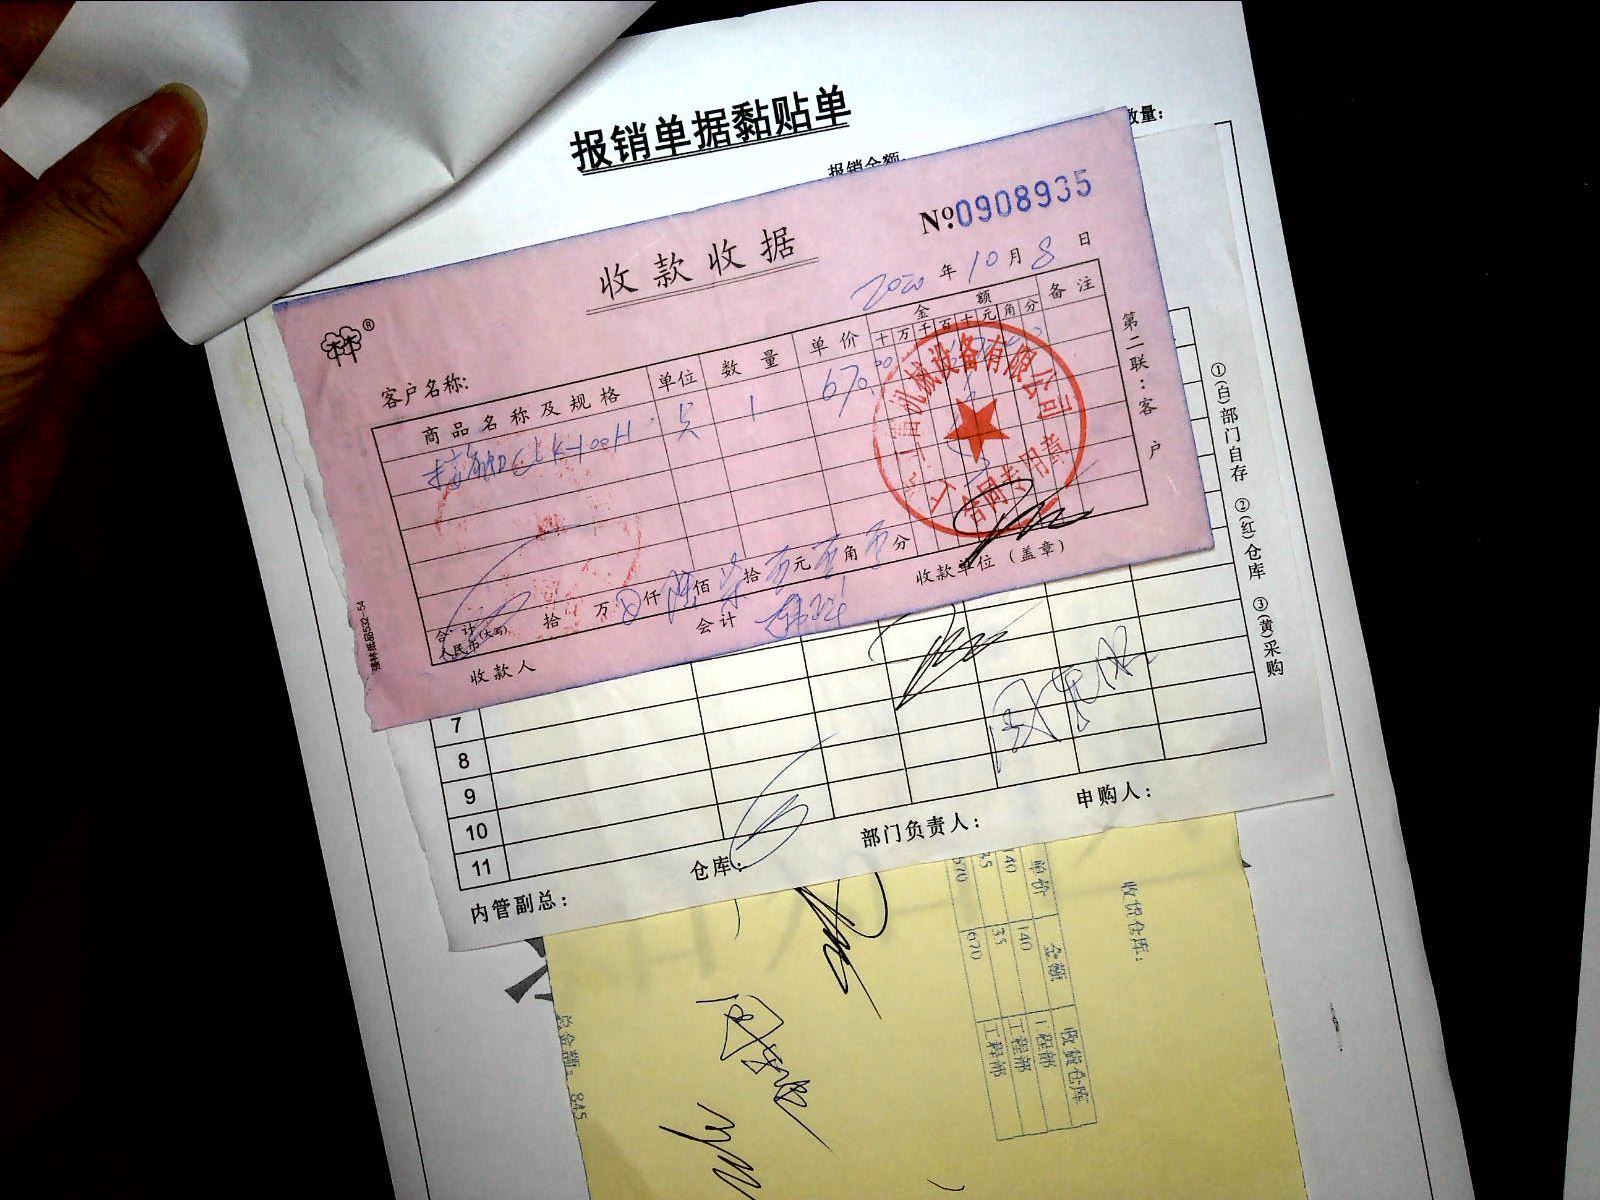 报销单据黏贴单
数量:
报销金额:
收款收据
№0908935
2020年10月8日
客户名称:
商品名称及规格 单位 数量 单价 金额 备注
十万千百十元角分
CJX-100H 只 1 670.00
机械设备有限公司
合同专用章
合计人民币(大写) 拾 万 0仟 陆佰 柒拾 元 角 分
收款人 会计 收款单位(盖章)
第二联:客户
7
8
9
10
11
①(白)部门自存 ②(红)仓库 ③(黄)采购
内管副总: 仓库: 部门负责人: 申购人:
单价 金额 收货仓库
140 140 工程部
35 35 工程部
670 670 工程部
收货仓库:
总金额: 845